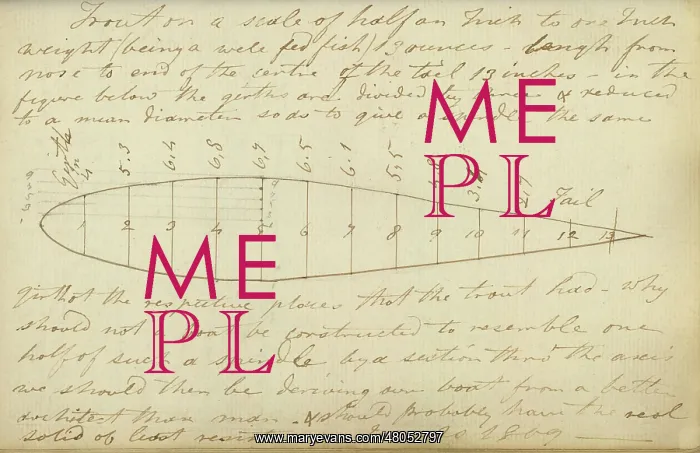 Trout on a scale of half an Inch to one Inch
weight (being a well fed fish) 13 ounces - length from
nose to end of the centre of the tail 13 inches - in the
figure below the girths are divided by three & reduced
to a mean diameter so as to give a spindle the same
Girths in 4 5.3 6.4 6.8 6.9 6.5 6.1 5.5
Tail
1 2 3 4 6 7 8 9 10 11 12 13
girth at the respective places that the trout had - why
should not a boat be constructed to resemble one
half of such a spindle by a section thro' the axis
we should then be deriving our boat from a better
architect than man - & should probably have the real
solid of least 1809
ME
PL
ME
PL
www.maryevans.com/48052797